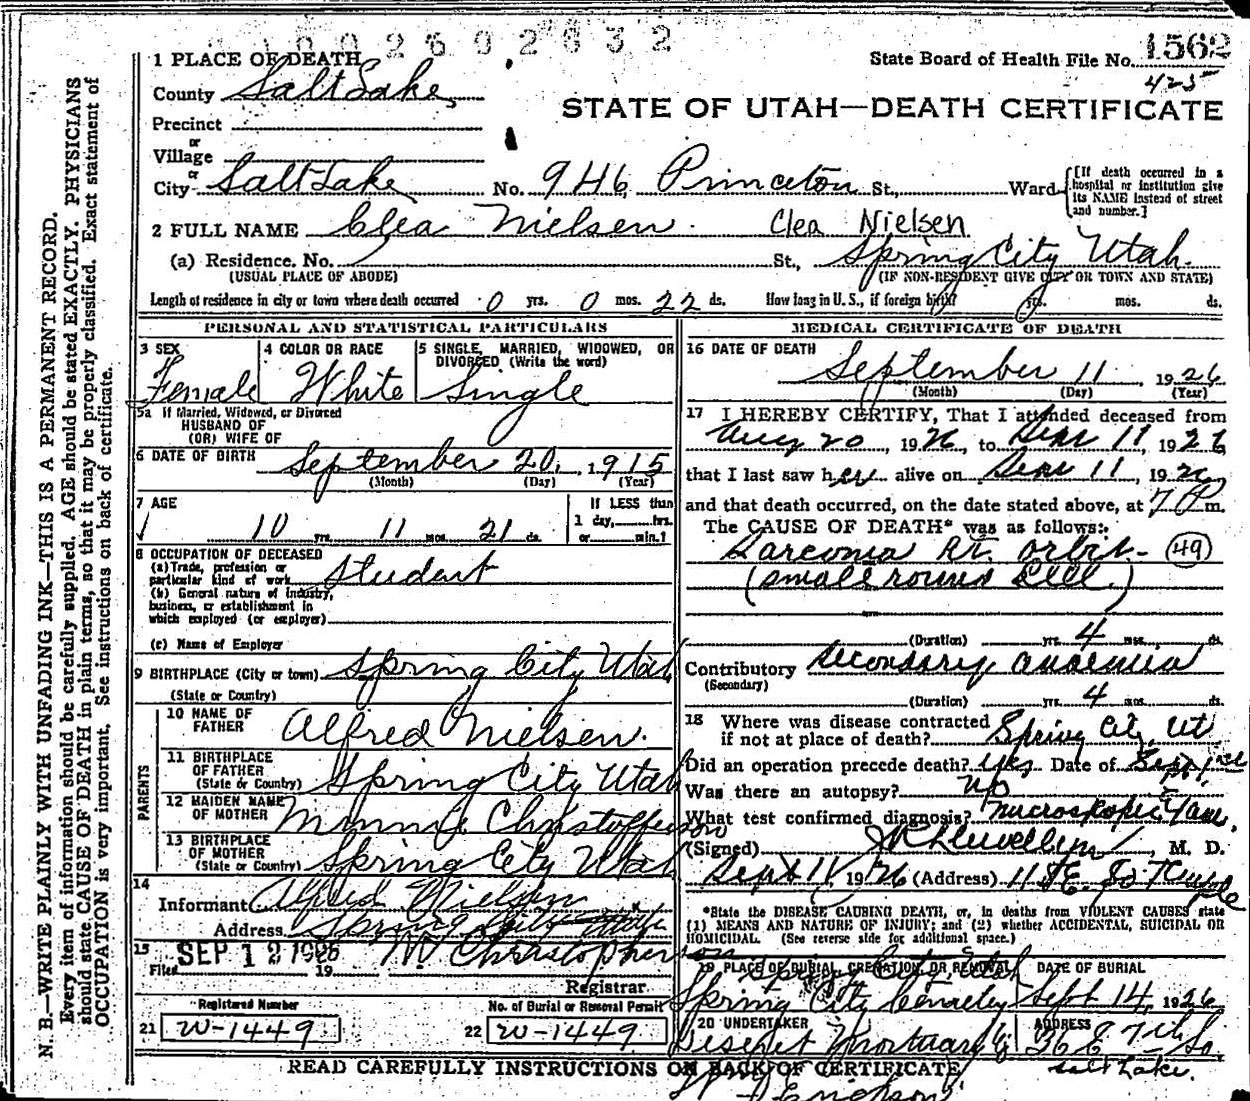 1002602632
1 PLACE OF DEATH
State Board of Health File No. 1562
425
County Salt Lake
STATE OF UTAH—DEATH CERTIFICATE
Precinct
or
Village
or
City Salt Lake No. 946 Princeton St., Ward
[If death occurred in a hospital or institution give its NAME instead of street and number.]
2 FULL NAME Clea Nielsen. Clea Nielsen
(a) Residence. No. St., Spring City Utah.
(USUAL PLACE OF ABODE) (IF NON-RESIDENT GIVE CITY OR TOWN AND STATE)
Length of residence in city or town where death occurred 0 yrs. 0 mos. 22 ds. How long in U. S., if foreign birth? yrs. mos. ds.
PERSONAL AND STATISTICAL PARTICULARS
3 SEX 4 COLOR OR RACE 5 SINGLE, MARRIED, WIDOWED, OR
DIVORCED (Write the word)
Female White Single
5a If Married, Widowed, or Divorced
HUSBAND OF
(OR) WIFE OF
6 DATE OF BIRTH September 20, 1915
(Month) (Day) (Year)
7 AGE If LESS than
10 yrs. 11 mos. 21 ds. 1 day, hrs.
or min.?
8 OCCUPATION OF DECEASED
(a) Trade, profession or
particular kind of work Student
(b) General nature of industry,
business, or establishment in
which employed (or employer)
(c) Name of Employer
9 BIRTHPLACE (City or town) Spring City Utah
(State or Country)
PARENTS
10 NAME OF
FATHER Alfred Nielsen.
11 BIRTHPLACE
OF FATHER
(State or Country) Spring City Utah
12 MAIDEN NAME
OF MOTHER Minnie Christofferson
13 BIRTHPLACE
OF MOTHER
(State or Country) Spring City Utah
14
Informant Alfred Nielsen
Address Spring City
15 SEP 12 1926 M Christopherson
Filed 19
Registrar
Registered Number No. of Burial or Removal Permit
21 W-1449 22 W-1449
MEDICAL CERTIFICATE OF DEATH
16 DATE OF DEATH
September 11, 1926
(Month) (Day) (Year)
17 I HEREBY CERTIFY, That I attended deceased from
Aug 20, 1926, to Sept 11 1926
that I last saw her alive on Sept 11, 1926
and that death occurred, on the date stated above, at 7 P m.
The CAUSE OF DEATH* was as follows:
Sarcoma Rt. orbit - 49
(small round cell)
(Duration) yrs. 4 mos. ds.
Contributory Secondary anaemia
(Secondary)
(Duration) yrs. 4 mos. ds.
18 Where was disease contracted
if not at place of death? Spring City, Ut
Did an operation precede death? yes Date of Sept 1st
Was there an autopsy? No
What test confirmed diagnosis? microskopic Exam.
(Signed) J R Llewellyn, M. D.
Sept 11, 1926 (Address) So Temple
*State the DISEASE CAUSING DEATH, or, in deaths from VIOLENT CAUSES state
(1) MEANS AND NATURE OF INJURY; and (2) whether ACCIDENTAL, SUICIDAL OR
HOMICIDAL. (See reverse side for additional space.)
19 PLACE OF BURIAL, CREMATION, OR REMOVAL DATE OF BURIAL
Spring City, Utah
Spring City Cemetery Sept 14, 1926
20 UNDERTAKER ADDRESS
Deseret Mortuary 36 E 7th So.
Salt Lake.
READ CAREFULLY INSTRUCTIONS ON BACK OF CERTIFICATE
Erickson
N. B.—WRITE PLAINLY WITH UNFADING INK—THIS IS A PERMANENT RECORD.
Every item of information should be carefully supplied. AGE should be stated EXACTLY. PHYSICIANS
should state CAUSE OF DEATH in plain terms, so that it may be properly classified. Exact statement of
OCCUPATION is very important. See instructions on back of certificate.